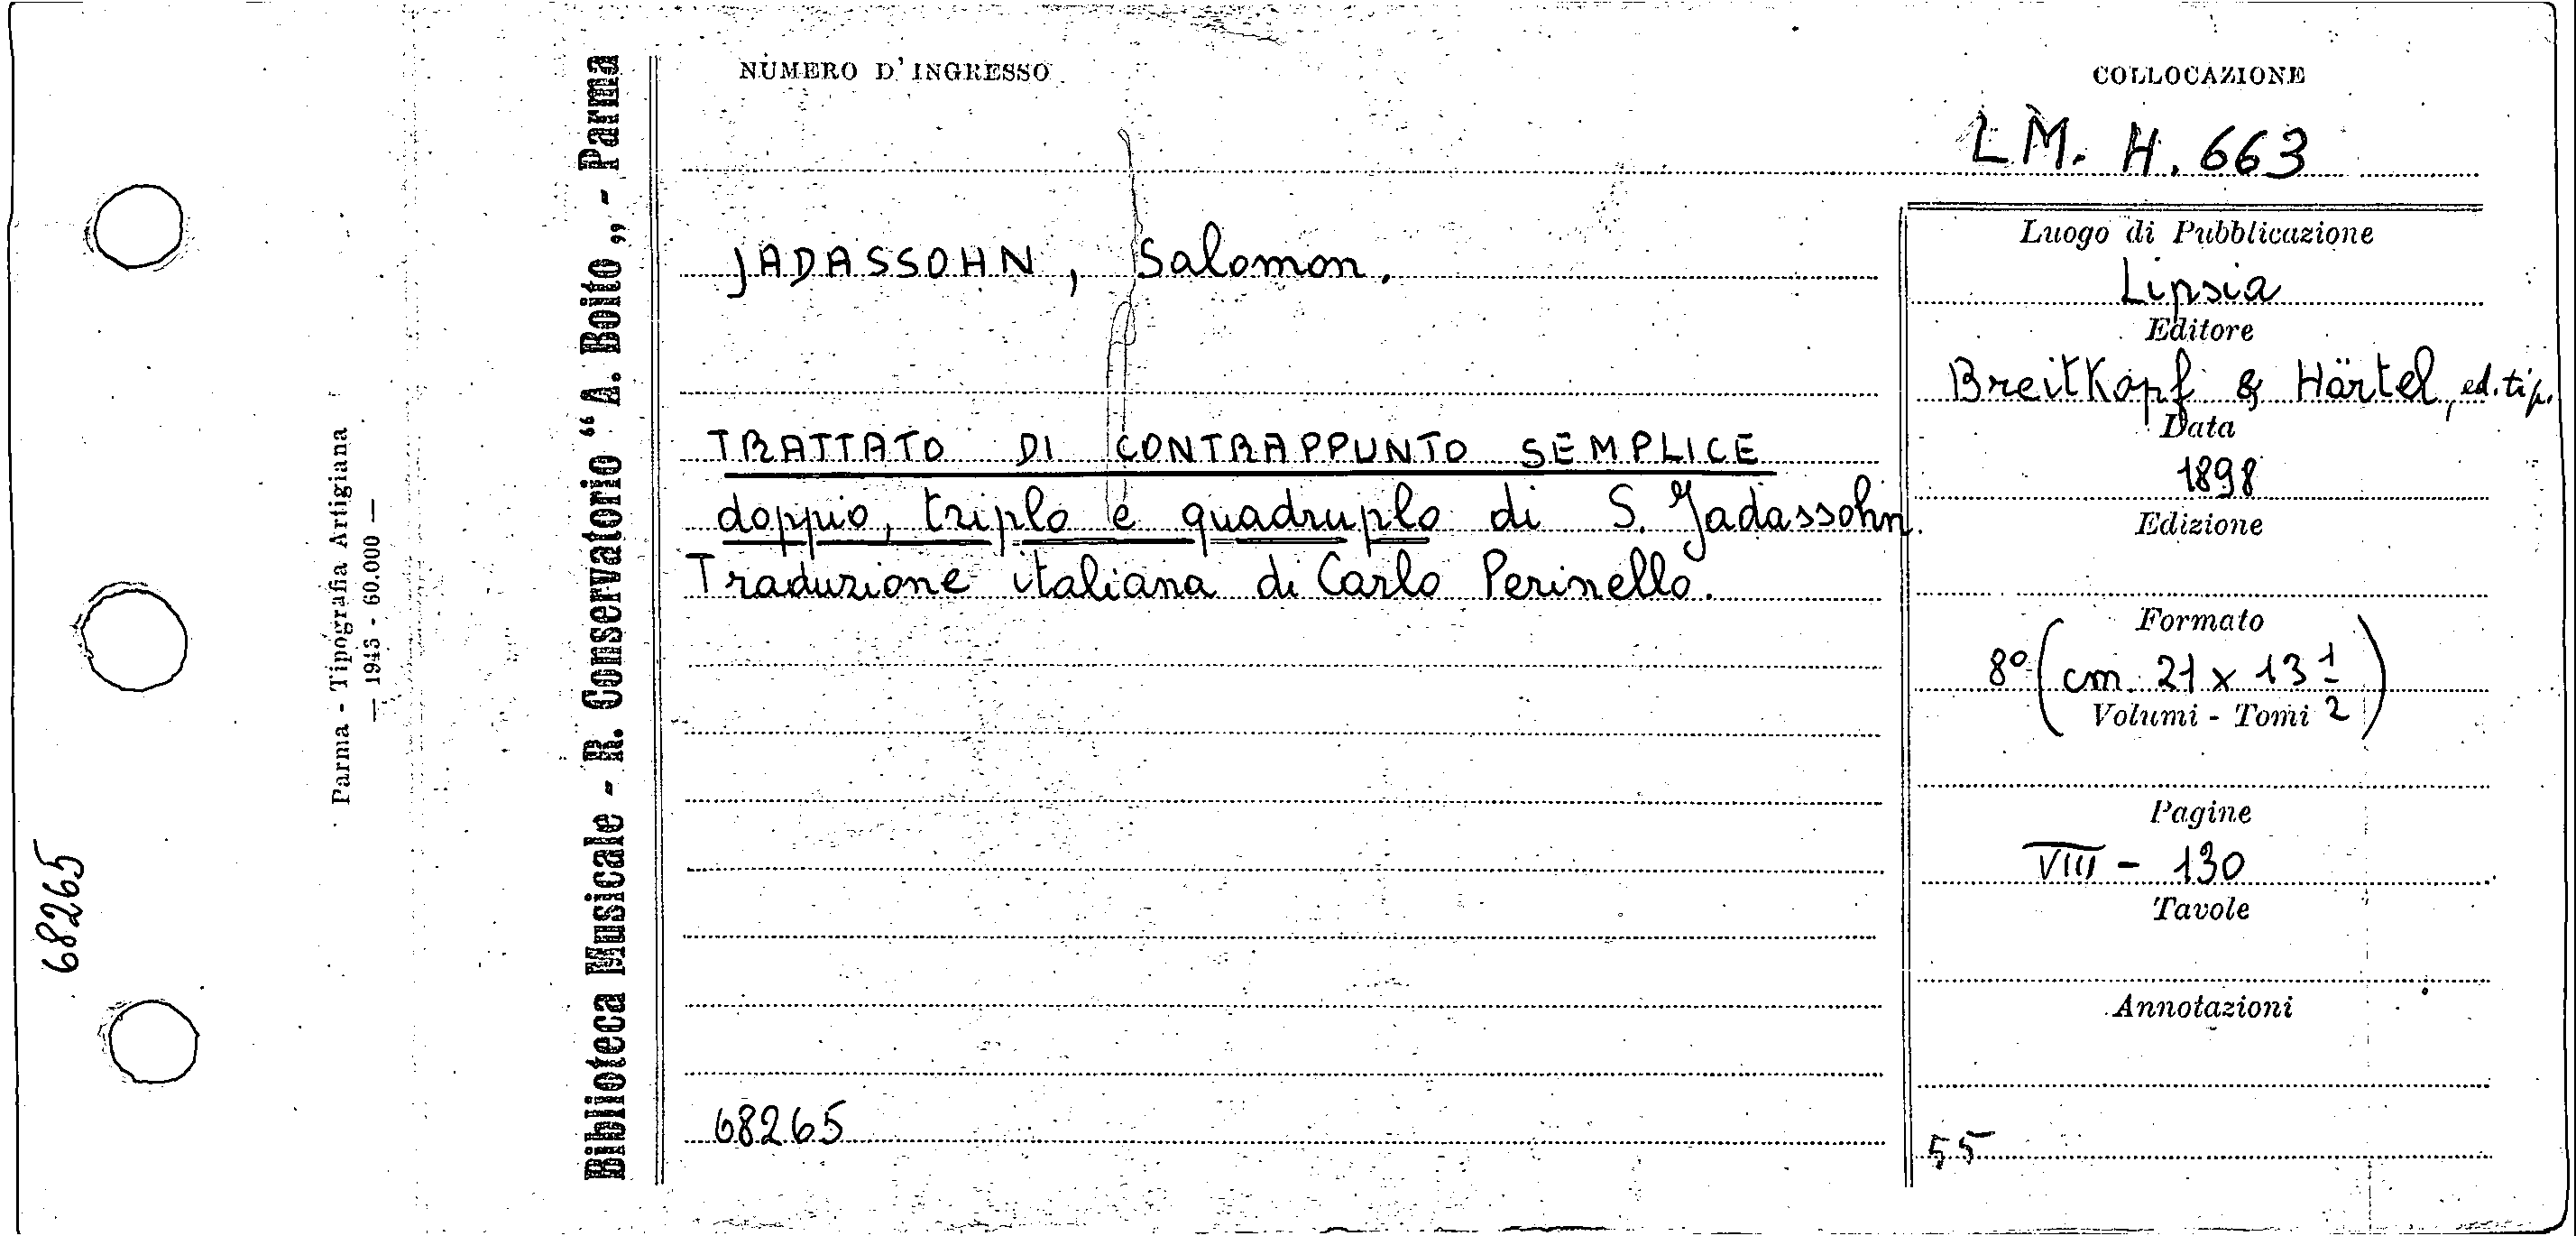 68265
Parma - Tipografia Artigiana
— 1943 - 60.000 —
Biblioteca Musicale - R. Conservatorio “A. Boito„ - Parma
NUMERO D'INGRESSO
COLLOCAZIONE
LM. H. 663
JADASSOHN, Salomon.
TRATTATO DI CONTRAPPUNTO SEMPLICE
doppio, triplo e quadruplo di S. Jadassohn.
Traduzione italiana di Carlo Perinello.
68265
Luogo di Pubblicazione
Lipsia
Editore
Breitkopf & Härtel, ed. tip.
Data
1898
Edizione
Formato
8º (cm. 21 x 13 1/2)
Volumi - Tomi
Pagine
VIII - 130
Tavole
Annotazioni
55